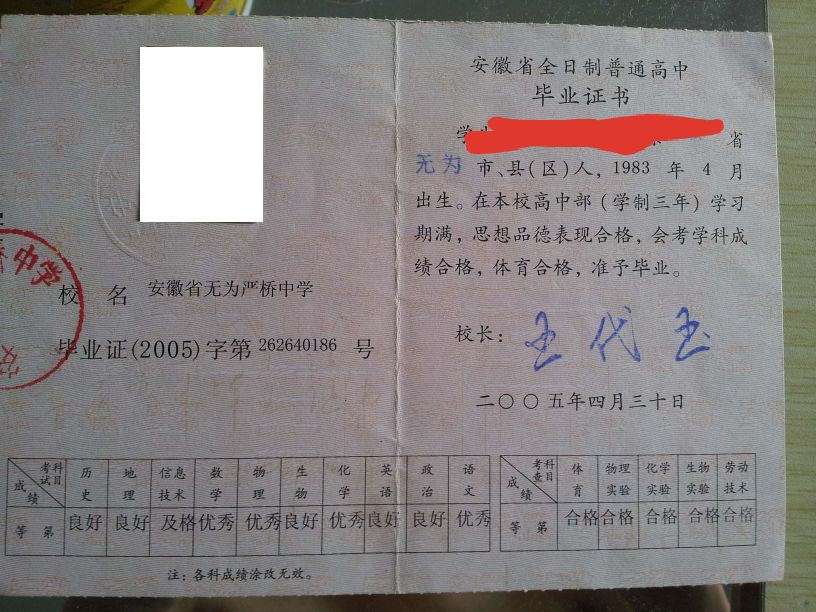 中学
校 名 安徽省无为严桥中学
毕业证(2005)字第262640186 号
安徽省全日制普通高中
毕业证书
学 省
无为 市、县(区)人, 1983 年 4 月
出生。在本校高中部(学制三年)学习
期满, 思想品德表现合格, 会考学科成
绩合格, 体育合格, 准予毕业。
校长: 王代玉
二〇〇五年四月三十日
考试科目 成绩 历史 地理 信息技术 数学 物理 生物 化学 英语 政治 语文
等 第 良好 良好 及格 优秀 优秀 良好 优秀 良好 良好 优秀
考查科目 成绩 体育 物理实验 化学实验 生物实验 劳动技术
等 第 合格 合格 合格 合格 合格
注: 各科成绩涂改无效。